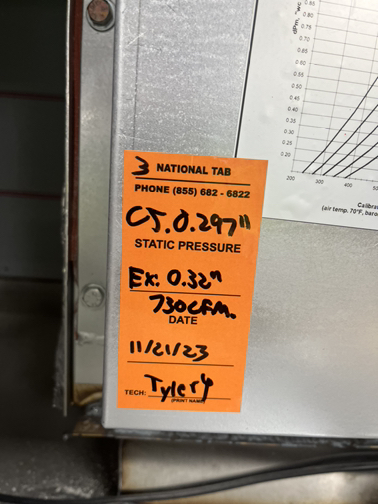 3 NATIONAL TAB
PHONE (855) 682 - 6822
CS. 0.297"
STATIC PRESSURE
Ex: 0.32"
730CFM.
DATE
11/21/23
TECH: Tyler Y
(PRINT NAME)
dPm, "wc
0.95
0.80
0.75
0.70
0.65
0.60
0.55
0.50
0.45
0.40
0.35
0.30
0.25
0.20
200
300
400
50
Calibra
(air temp. 70°F, baro